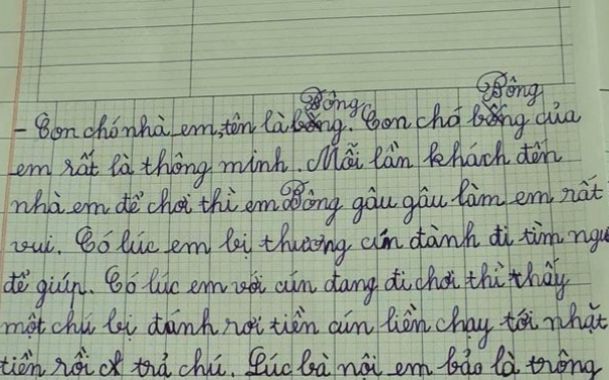 Bông Bông
- Con chó nhà em, tên là bông. Con chó bông của
em rất là thông minh. Mỗi lần khách đến
nhà em để chơi thì em Bông gâu gâu làm em rất
vui. Có lúc em bị thương cún đành đi tìm ngư
để giúp. Có lúc em với cún đang đi chơi thì thấy
một chú bị đánh rơi tiền cún liền chạy tới nhặt
tiền rồi trả chú. Lúc bà nội em bảo là trông